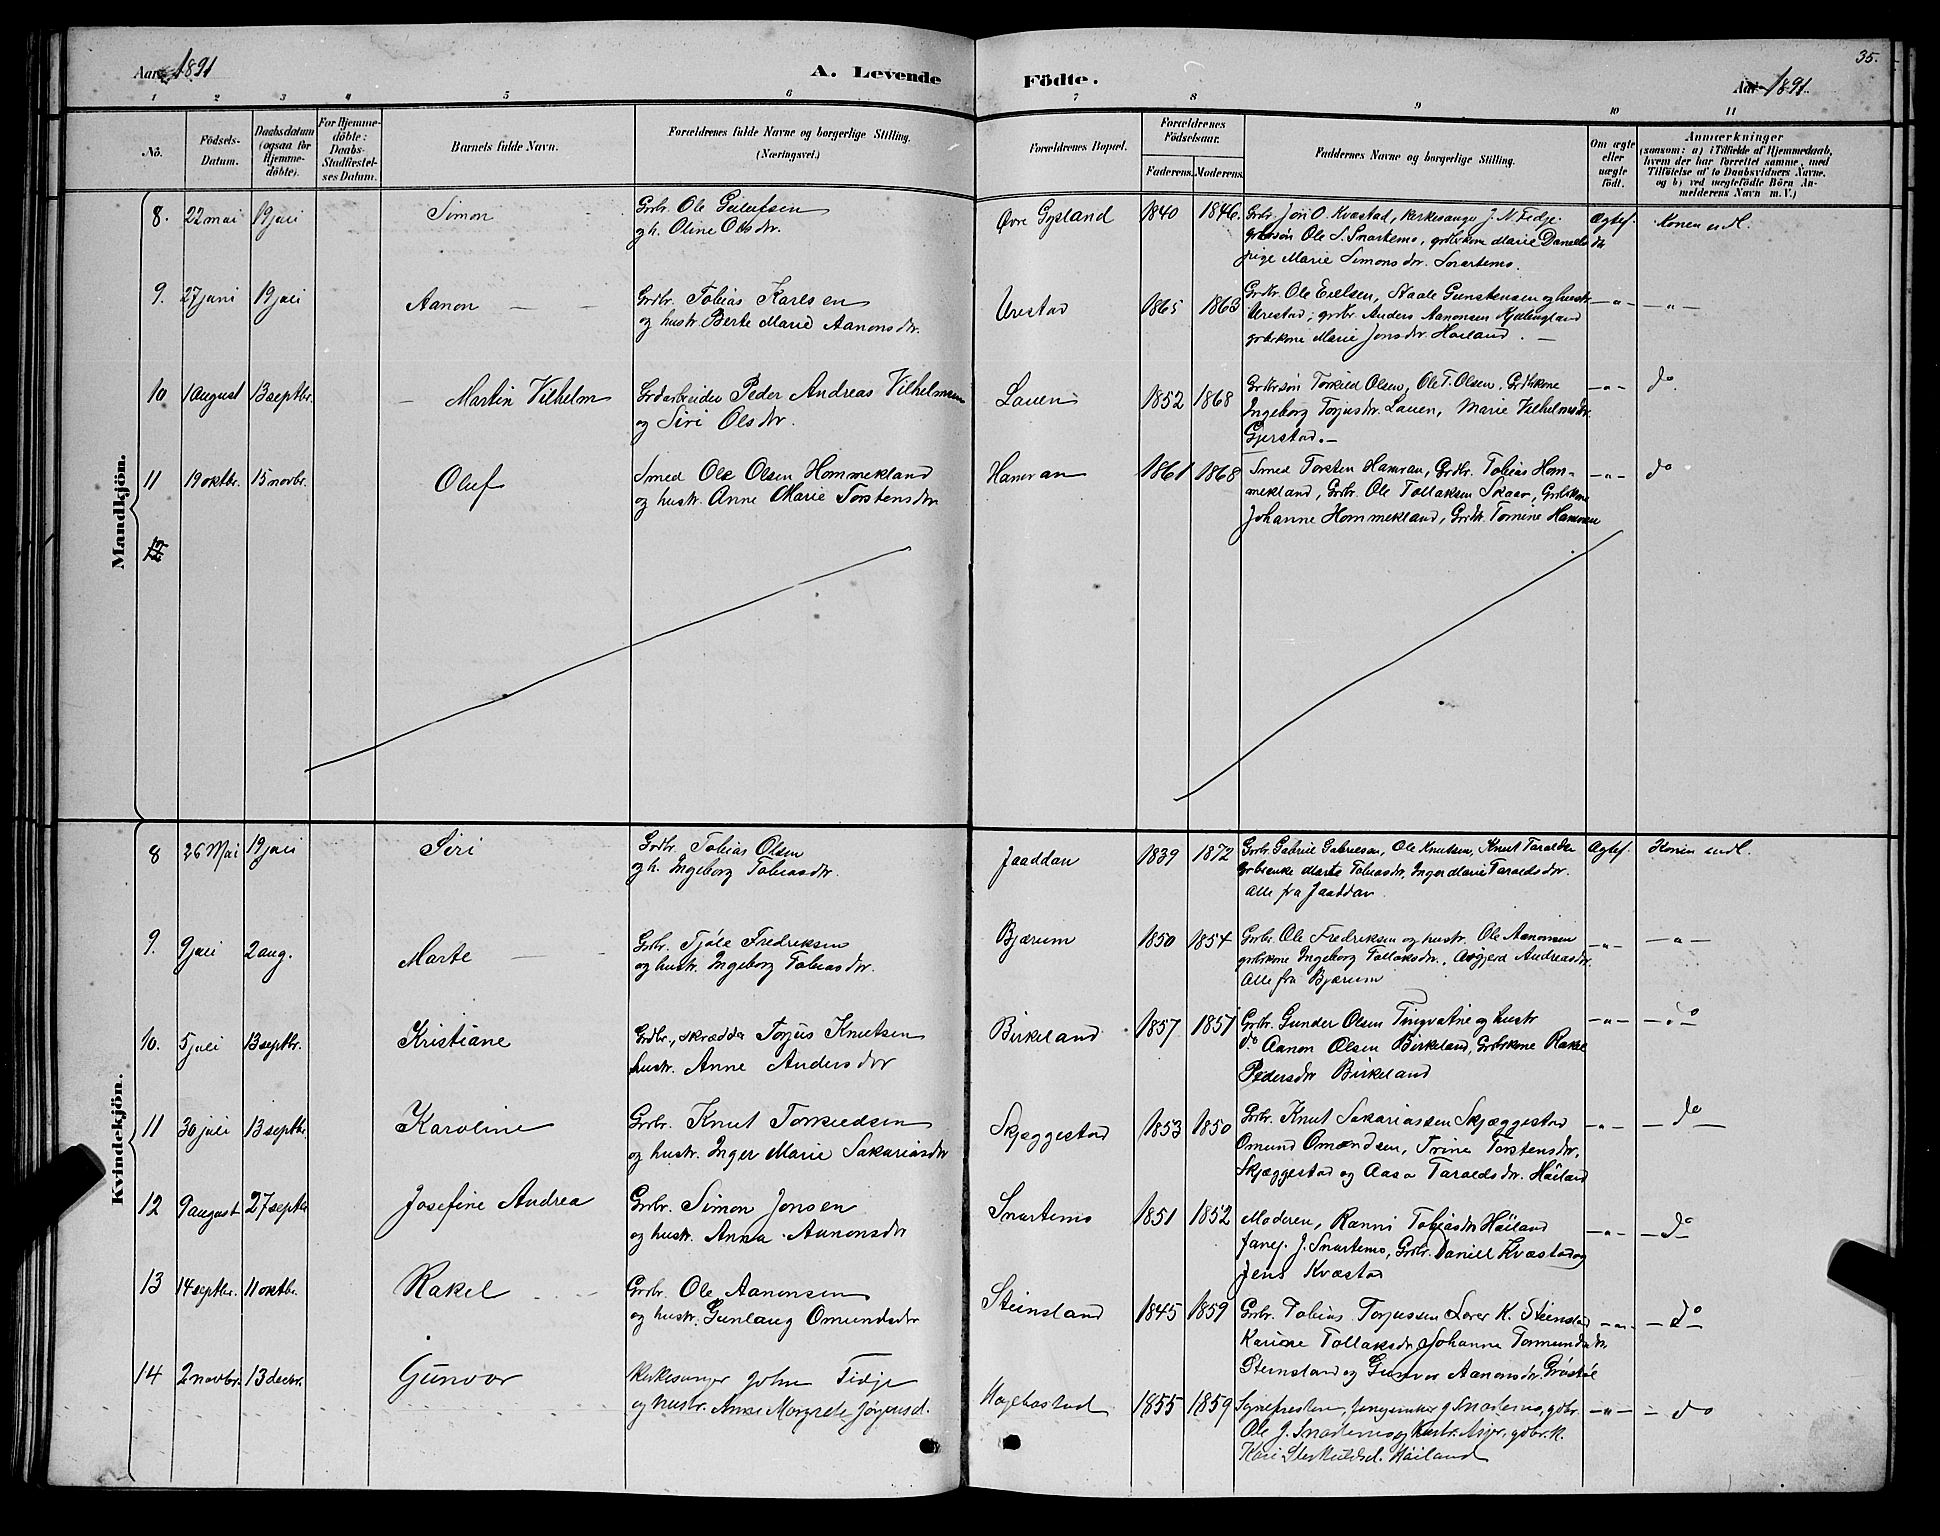 35.
Aar 1891
A. Levende
Födte.
Aar 1891.
1 2 3 4 5 6 7 8 9 10 11
No.
Födsels-Datum.
Daabsdatum (ogsaa for Hjemme-döbte).
For Hjemme-döbte: Daabs-Stadfæstel-ses Datum.
Barnets fulde Navn.
Forældrenes fulde Navne og borgerlige Stilling.
(Næringsvei.)
Forældrenes Bopæl.
Forældrenes Födselsaar.
Faderens. Moderens.
Faddernes Navne og borgerlige Stilling.
Om ægte eller uægte födt.
Anmærkninger
(saasom: a) i Tilfælde af Hjemmedaab, hvem der har forrettet samme, med Tilföielse af to Daabsvidners Navne, og b) ved uægtefödte Börn Anmelderens Navn m. V.)
Mandkjön.
8. 22 mai 19 juli Simon
Grbr. Ole
og h. Oline Olsdtr.
Øvre Gysland 1840 1846.
Grbr. Jon O. Kvæstad, kirkesanger J. N. Fidje
Ole S. Snartemo, grdbrkone Marie Danielsdtr
pige Marie Simonsdtr. Snartemo.
Ægtef. Konen indl.
9. 27 juni 19 juli Aanon
Grdbr. Tobias Karlsen
og hustr. Berte Marie Aanonsdtr.
Urestad 1865 1863
Grdbr. Ole Eielsen, Staale Gunstensen og hustr.
Urestad; grbr. Anders Aanonsen
grbrkone Marie Jonsdtr Høiland.
— " — — " —
10 1 august 13 septbr. Martin Vilhelm
Grdarbeider Peder Andreas Vilhelmsen
og Siri Olsdtr.
Lauen 1852 1868
Grdbrsøn Torkild Olsen, Ole T. Olsen, Grdbkone
Ingeborg Torjusdtr. Lauen, Marie Vilhelmsdtr.
Gjerstad.
— " — do
11 19 oktbr. 15 novbr. Oluf
Smed Ole Olsen Hommekland
og hustr. Anne Marie Torstensdtr
Hamran 1861 1868
Smed Torsten Hamran, Grdbr. Tobias Hom-
mekland, Grbr. Ole Tollaksen Skaar, Grbkone
Johanne Hommekland, Grdbr. Tomine Hamran
— " — do
12
Kvindekjön.
8 26 Mai 19 juli Siri
Grdbr. Tobias Olsen
og h. Ingeborg Tobiasdtr.
Jaaddan 1839 1872
Grbr. Gabriel Gabrielsen, Ole Knutsen, Knut Taraldsen
Grbrenke Marte Tobiasdtr, Inger Marie Taraldsdtr.
Alle fra Jaaddan
Ægtef. Konen indl.
9. 9 juli 2 aug. Marte
Grbr. Tjöle Fredriksen
og hustr. Ingeborg Tobiasdtr.
Bjærum 1850 1854
Grbr. Ole Fredriksen og hustr. Ole Aanonsen
grbrkone Ingeborg Tollaksdtr., Asgjerd Andreasdtr.
Alle fra Bjærum
— " — — " —
10. 5 juli 13 septbr. Kristiane
Grdbr., skrædder Torjus Knutsen
hustr. Anne Andersdtr
Birkeland 1857 1851
Grbr. Gunder Olsen Tingvatne og hustr
do Aanon Olsen Birkeland, Grbrkone Rakel
Pedersdtr Birkeland
— " — — do
11 30 juli 13 septbr. Karoline
Grbr. Knut Torkildsen
og hustr. Inger Marie Sakariasdtr
Skjæggestad 1853 1850
Grbr. Knut Sakariassen Skjæggestad
Omund Omundsen, Trine Torstensdtr.
Skjæggestad og Aasa Taraldsdtr. Høiland
— " — — do —
12 9 august 27 septbr Josefine Andrea
Grbr. Simon Jonsen
og hustr. Anna Aanonsdtr
Snartemo 1851 1852
Moderen, Ranni Tobiasdtr Høiland
J. Snartemo, Grbr. Daniell Kvæstad og
Jens Kvæstad
— " — — do
13 14 septbr. 11 oktbr. Rakel
Grbr. Ole Aanonsen
og hustr. Gunlaug Omundsdtr
Steinsland 1845 1859
Grbr. Tobias Torjussen Lover K. Steinsland
Karine Tollaksdtr, Johanne Tormundsdtr
Steinsland og Gunvor Aanonsdtr. Brøstøl
— " — — do —
14 2 novbr. 13 decbr. Gunvor
Kirkesanger John Fidje
og hustr. Anne Margrete Jørgensd.
Hægebostad 1855 1859
Sognepresten, J. Snartemo, gdbr.
Ole J. Snartemo og hustr. gdbr. k.
Høiland
— " — — do